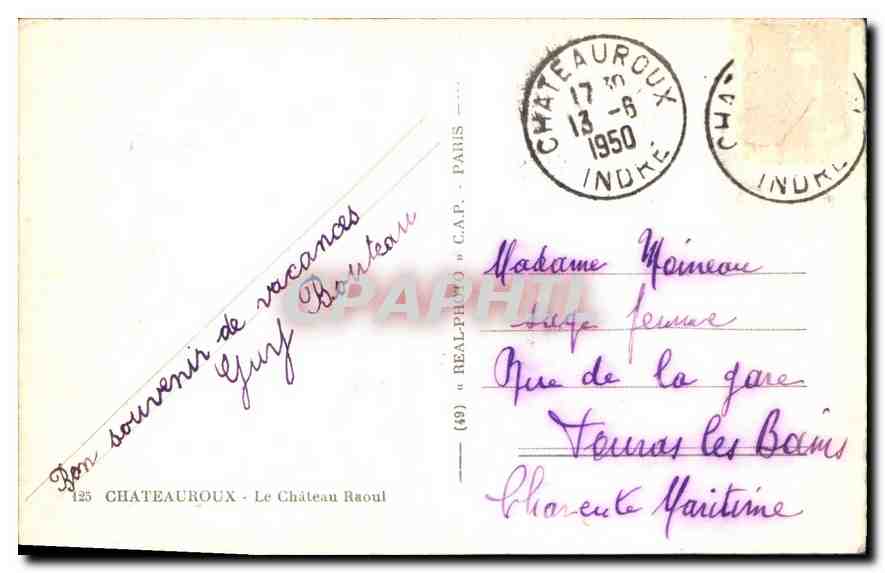 CHATEAUROUX
17 30
13 -6
1950
INDRE
CHA
INDRE
Bon souvenir de vacances
Bouteau
125 CHATEAUROUX - Le Château Raoul
(49) « REAL-PHOTO » C.A.P. - PARIS
CPAPHIL
Madame Moineau
sage femme
Rue de la gare
Fouras les Bains
Charente Maritime